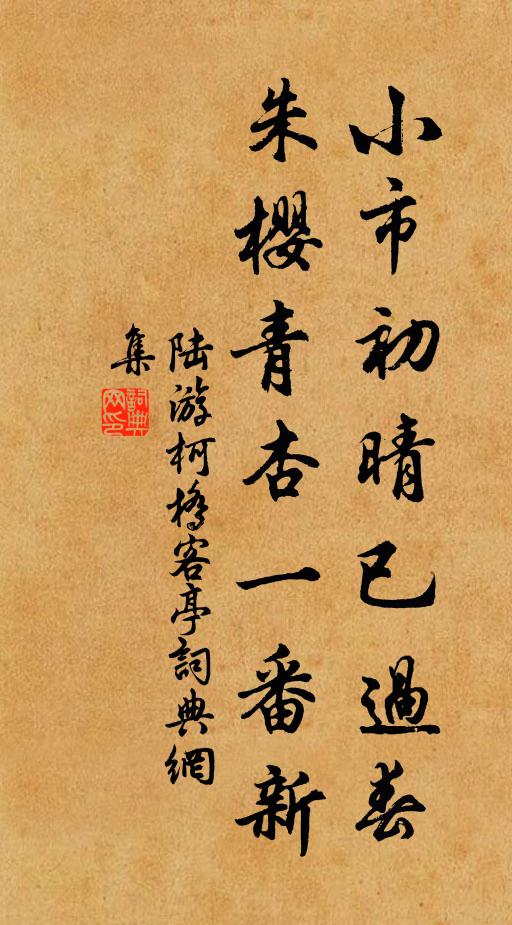 小市初晴已過春
朱櫻青杏一番新
陸游柯橋客亭詞典網
集
詞典
网印